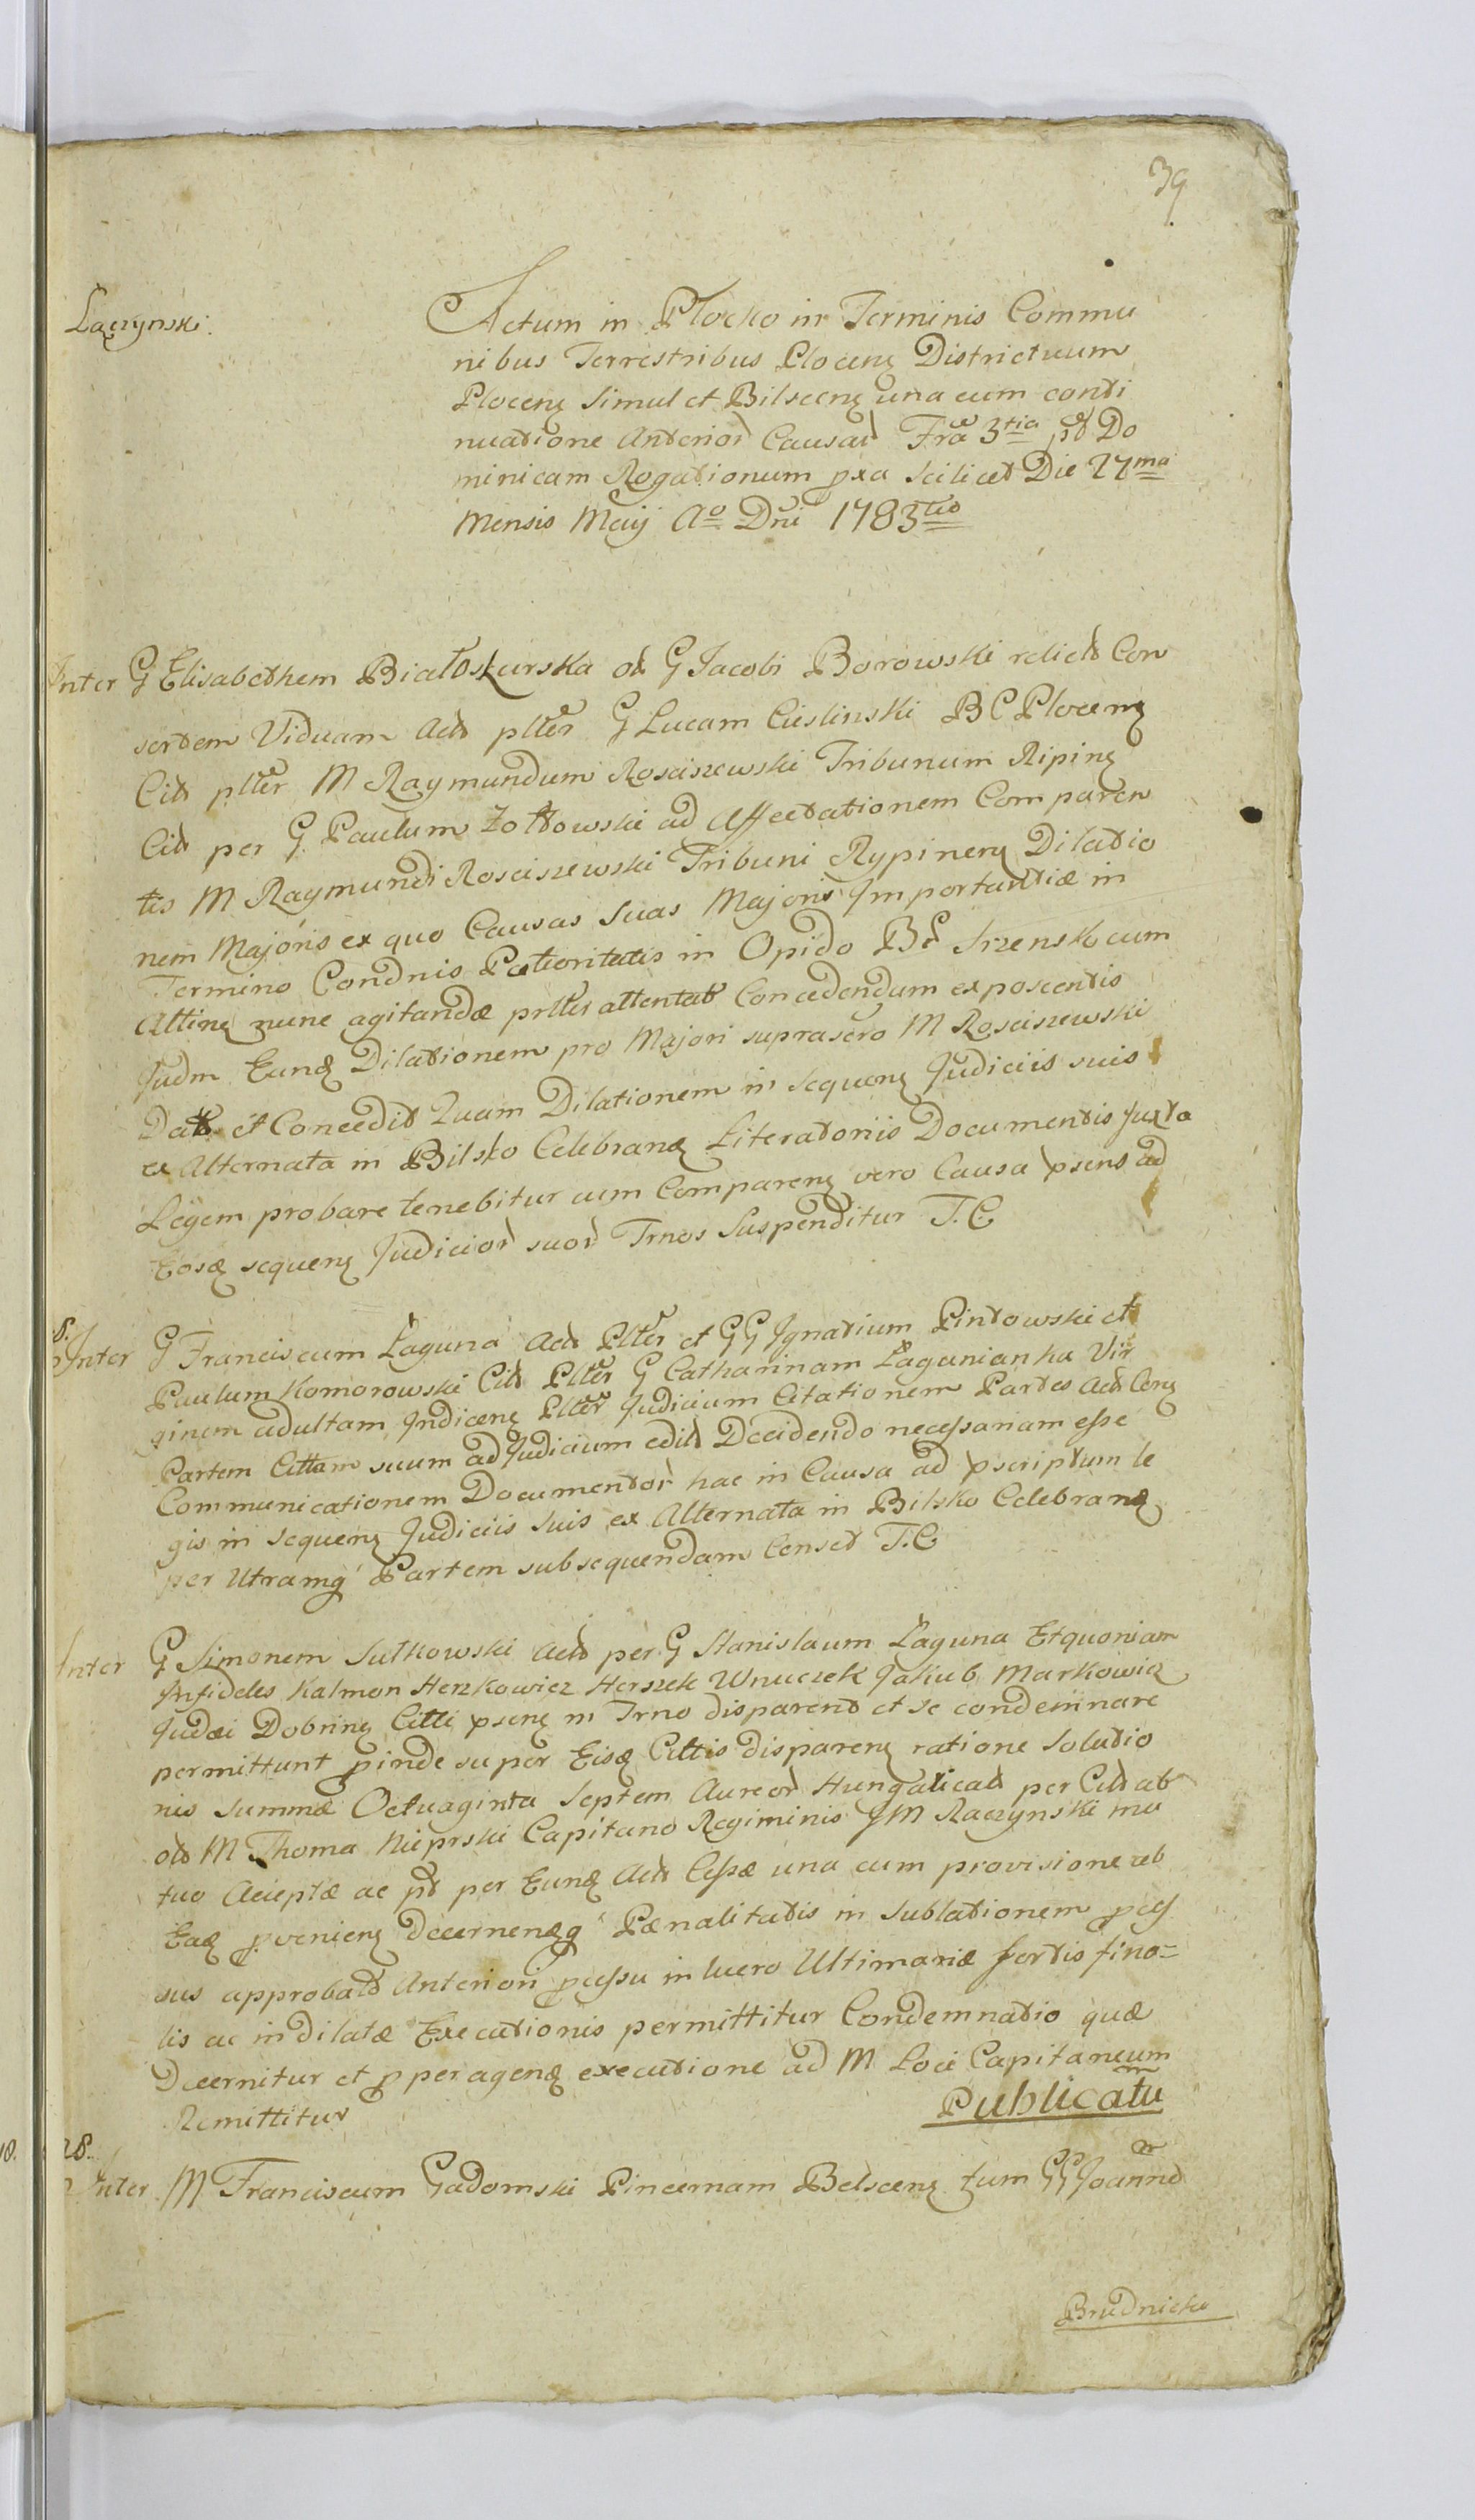 39
Łączynski.
Actum in Plocko in Terminis Commu
nibus Terrestribus Plocenꝫ Districtuum
Plocenꝫ Simul et Bilscenꝫ una cum conti
nuatione Anterior Causar Fra 3tia pt Do
minicam Rogationum pxa scilicet Die 27ma
Mensis Maij Ao Dni 1783tio
Inter G Elisabethem Białoskurska ol G Jacobi Borowski relict Con
sortem Viduam Act plter G Lucam Cieslinski BC Plocenꝫ
Cit plter M Raymundum Rosciszewski Tribunum Ripinꝫ
Cit per G Paulum Zołtowski ad Affectationem Comparen
tis M Raymundi Rosciszewski Tribuni Rypinenꝫ Dilatio
nem Majoris ex quo Causas suas Majoris Importantiæ in
Termino Condnis Potioritatis in Opido Srzensk cum
Attinꝫ nunc agitandæ prlter attentat Concedendum exposcentis
Judm Eunꝫ Dilationem pro Majori suprascro M Rosciszewski
Dat et Concedit Quam Dilationem in sequenꝫ Judiciis suis
ex Alternata in Bilsko Celebranꝫ Literatoriis Documentis Juxta
Legem probare tenebitur cum Comparenꝫ vero Causa psens ad
Eosꝫ sequenꝫ Judicior suor Trnos Suspenditur T.C
8.
Inter G Franciscum Łaguna Act Plter et GG Ignatium Pintowski et
Paulum Komorowski Cit Plter G Catharinam Łagunianka Vir
ginem adultam Indicenꝫ Plter Judicium Citationem Partes Act Cenꝫ
Partem Cittam suum ad Judicium edit Decidendo necessariam esse
Communicationem Documentor hac in Causa ad pscriptum le
gis in sequenꝫ Judiciis suis ex Alternata in Bilsko Celebranꝫ
per Utramq Partem subsequendam Censet T.C
Inter G Simonem Sutkowski Act per G Stanislaum Łaguna Etquoniam
Infideles Kalmon Herzkowicz Herszek Wnuczek Jakub Markowicz
Judæi Dobrinꝫ Citti psenꝫ in Trno disparent et se condemnare
permittunt proinde super Eisꝫ Cittis disparenꝫ ratione solutio
nis summæ Octuaginta Septem Aureor Hungaricalt per Citt ab
olt M Thoma Nieprski Capitano Regiminis JM Raczynski mu
tuo Acceptæ ac pt per Eunꝫ Act Cessæ una cum provisione ab
Eaꝫ provenienꝫ Decernenꝫq Pænalitatis in sublationem pcess
sus approbato Anteriori pcessu in lucro Ultimariæ sortis fina=
lis ac indilatæ Executionis permittitur Condemnatio quæ
Decernitur et pro peragenꝫ executione ad M Loci Capitaneum
Remittitur
Publicatu
28.
Inter M Franciscum Gadomski Pincernam Belscenꝫ tum GG Joannem
Brudnicka